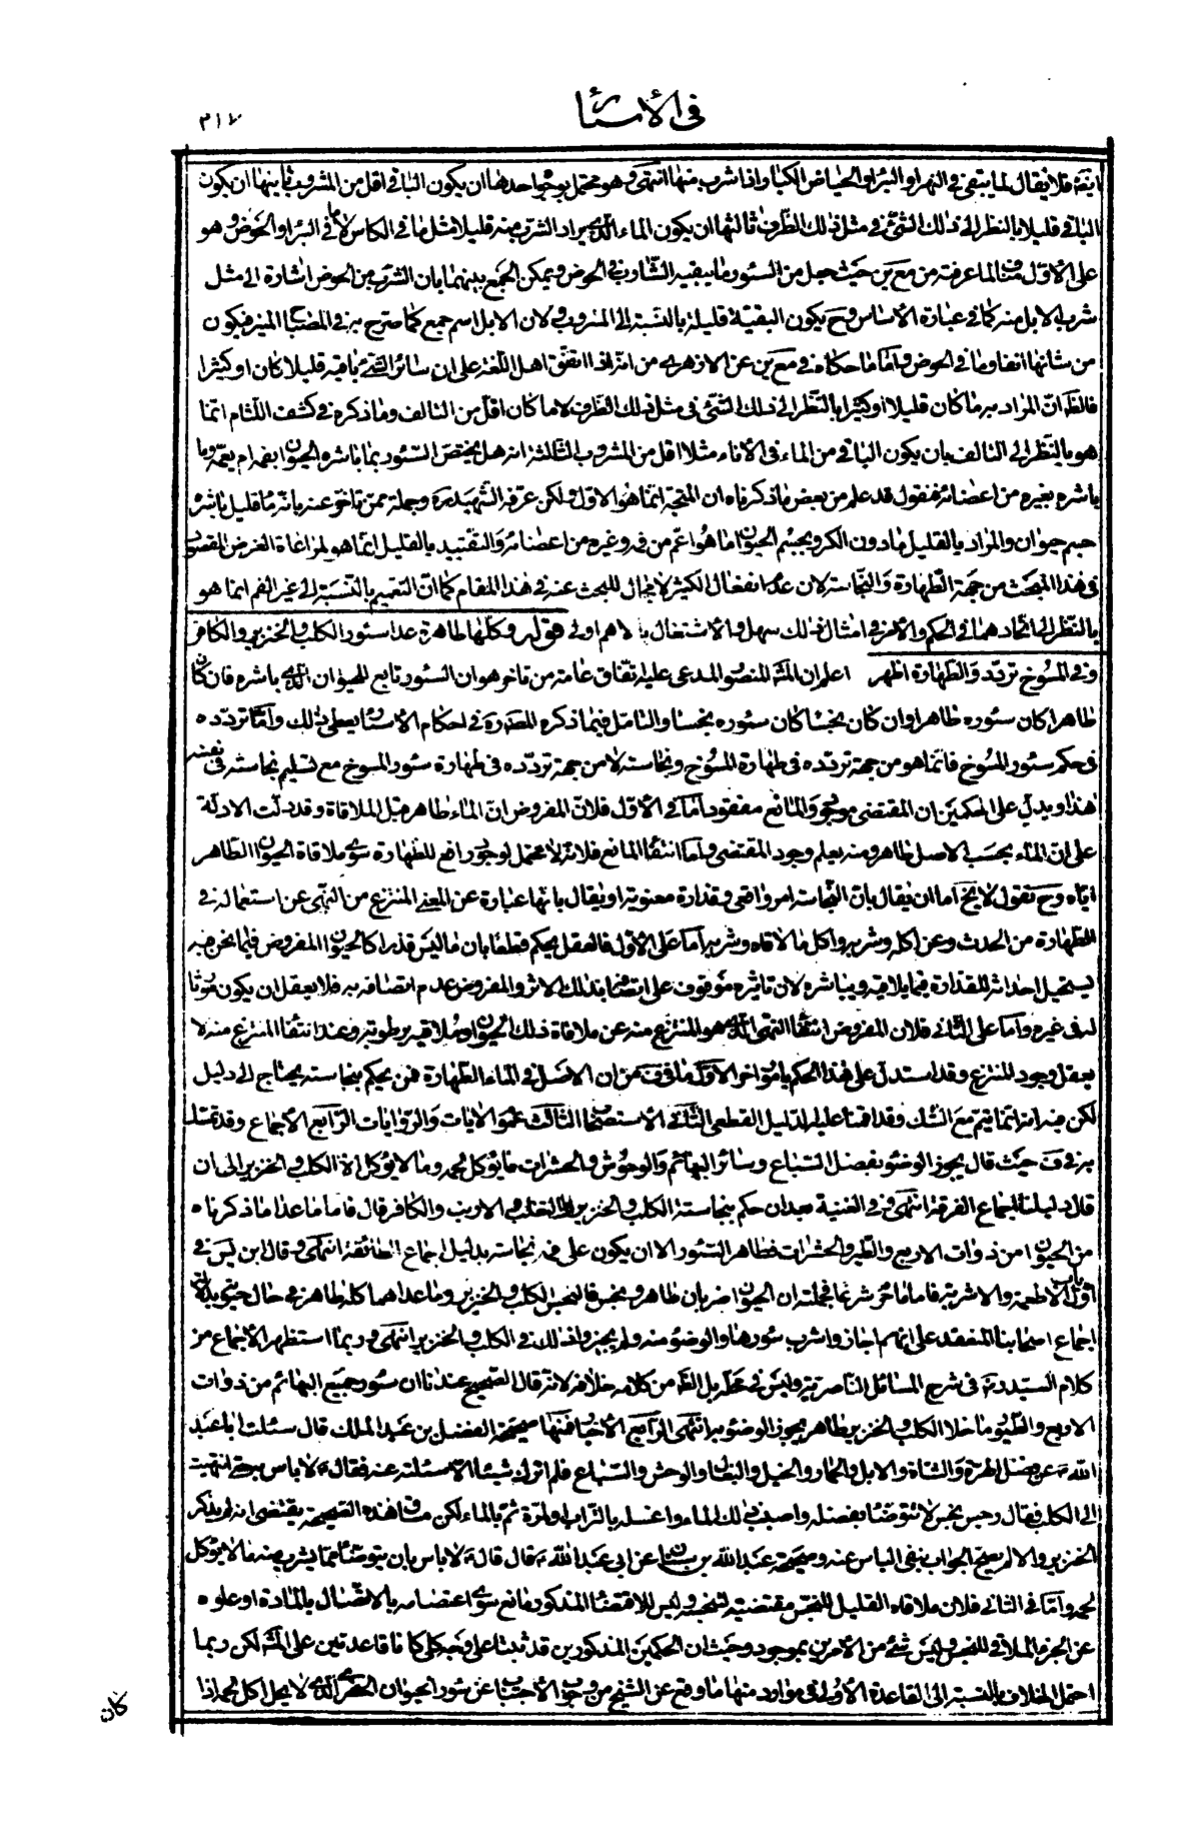 في الأسئار
٣١٧
ايته فلا يقال لما يبقى في النهر او البئر او الحياض الكبار اذا شرب منها انتهى وهو محتمل لوجوه احدها ان يكون الباقي اقل من المشروب ثانيها ان يكون
الباقي قليلا بالنظر الى ذلك الشيء في مثل ذلك الظرف ثالثها ان يكون الماء الذي يراد الشرب منه قليلا مثل ما في الكاس لا ما في البئر او الحوض وهو
على الأول مناف لما عرفته من مع ين حيث جعل من السئور ما يبقيه الشارب في الحوض ويمكن الجمع بينهما بان الشرب من الحوض اشارة الى مثل
شرب الابل منه كما في عبارة الأساس وح يكون البقية قليلة بالنسبة الى المشروب ولان الابل اسم جمع كما صرح به في المصباح المنير فيكون
من شانها افناء ما في الحوض واما ما حكاه في مع ين عن الازهري من انه اتفق اهل اللغة على ان سائر الشيء باقيه قليلا كان او كثيرا
فالظ ان المراد به ما كان قليلا او كثيرا بالنظر الى ذلك الشيء في مثل ذلك الظرف لا ما كان اقل من التالف وما ذكره في كشف اللثام انما
هو بالنظر الى التالف بان يكون الباقي من الماء في الأناء مثلا اقل من المشروب الثالثة انه هل يختص السئور بما باشره الحيوان بفمه ام يعمه وما
باشره بغيره من اعضائه فنقول قد علم من بعض ما ذكرناه ان المتجه انما هو الاول ولكن عرفه الشهيد ره وجملة ممن تاخر عنه بانه ماء قليل باشره
جسم حيوان والمراد بالقليل مادون الكر وبجسم الحيوان ما هو اعم من فمه وغيره من اعضائه والتقييد بالقليل انما هو لمراعاة الغرض المقصود
في هذا المبحث من جهة الطهارة والنجاسة لان عدم انفعال الكثير لا مجال للبحث عنه في هذا المقام كما ان التعميم بالنسبة الى غير الفم انما هو
بالنظر الى اتحادهما في الحكم والأمر في امثال ذلك سهل والأشتغال بالاهم اولى قوله وكلها طاهرة عدا سئور الكلب والخنزير والكافر
وفي المسوخ تردد والطهارة اظهر اعلم ان المش المنصور المدعى عليه اتفاق عامة من تاخر هو ان السئور تابع للحيوان الذي باشره فان كان
طاهرا كان سئوره طاهرا وان كان نجسا كان سئوره نجسا والتامل فيما ذكره المصره في احكام الأسئار يعطي ذلك واما تردده
في حكم سئور المسوخ فانما هو من جهة تردده في طهارة المسوخ ونجاسته لا من جهة تردده في طهارة سئور المسوخ مع تسليم نجاسته في نفسه
هذا ويدل على الحكمين ان المقتضي موجود والمانع مفقود اما في الأول فلان المفروض ان الماء طاهر قبل الملاقاة وقد دلت الادلة
على ان الماء بحسب الاصل طاهر ومنه يعلم وجود المقتضي واما انتفاء المانع فلانه لا محتمل لوجود رافع للطهارة سوى ملاقاة الحيوان الطاهر
اياه وح نقول لا يخ اما ان يقال بان النجاسة امر واقعي وقذارة معنوية او يقال بانها عبارة عن المعنى المنتزع من النهي عن استعماله في
الطهارة من الحدث وعن اكله وشربه واكل ما لاقاه وشربه اما على الأول فالعقل يحكم قطعا بان ما ليس قذرا كالحيوان المفروض فيما نحن فيه
يستحيل احداثه للقذارة فيما يلاقيه ويباشره لان تاثيره موقوف على اتصافه بذلك الاثر والمفروض عدم اتصافه به فلا يعقل ان يكون موثرا
له في غيره واما على الثاني فلان المفروض انتفاء النهي الذي هو المنتزع منه عن ملاقاة ذلك الحيوان وملاقيه برطوبة وعند انتفاء المنتزع منه لا
يعقل وجود المنتزع وقد استدل على هذا الحكم بامور اخر الأول ما في ف من ان الاصل في الماء الطهارة فمن يحكم بنجاسته يحتاج الى دليل
لكن فيه انه انما يتم مع الشك وقد اقمنا عليه الدليل القطعي الثاني الاستصحاب الثالث عموم الايات والروايات الرابع الأجماع وقد تمسك
به في ف حيث قال يجوز الوضوء بفضل السباع وسائر البهائم والوحوش والحشرات ما يؤكل لحمه وما لا يؤكل الا الكلب والخنزير الى ان
قال دليلنا اجماع الفرقة انتهى وفي الغنية بعد ان حكم بنجاسة الكلب والخنزير والثعلب والارنب والكافر قال فاما ما عدا ما ذكرناه
من الحيوان من ذوات الاربع والطير والحشرات فطاهر السئور الا ان يكون على فمه نجاسة بدليل اجماع الطائفة انتهى وقال ابن يس في
اول باب الاطعمة والاشربة فاما ما حرم شرعا فجملته ان الحيوان ضربان طاهر ونجس فالنجس الكلب والخنزير وما عداهما كله طاهر في حال حيوته بدلالة
اجماع اصحابنا المنعقد على انهم اجازوا شرب سئورها والوضوء منه ولم يجيزوا ذلك في الكلب والخنزير انتهى وربما استظهر الأجماع من
كلام السيد ره في شرح المسائل الناصرية وليس في محله بل الظ من كلامه خلافه لانه قال الصحيح عندنا ان سئور جميع البهائم من ذوات
الاربع والطيور ما خلا الكلب والخنزير طاهر يجوز الوضوء به انتهى الرابع الأخبار فمنها صحيحة الفضل بن عبد الملك قال سئلت ابا عبد
الله ع عن فضل الهرة والشاة والابل والحمار والخيل والبغال والوحش والسباع فلم اترك شيئا الا سئلته عنه فقال ع لا باس به حتى انتهيت
الى الكلب فقال رجس نجس لا تتوضا بفضله واصبب ذلك الماء واغسله بالتراب اول مرة ثم بالماء لكن مساق هذه الصحيحة يقتضي انه لم يذكر
الخنزير والا لم يصح الجواب بنفي الباس عنه وصحيحة عبد الله بن سنان عن ابي عبد الله ع قال قال ع لا باس بان يتوضا مما يشرب منه ما لا يؤكل
لحمه واما في الثاني فلان ملاقاة القليل للنجس مقتضية لتنجسه وليس للاقتضاء المذكور مانع سوى اعتصامه بالاتصال بالمادة او علوه
عن الجرم الملاقي للنجس وليس شئ من الأمرين بموجود وحيث ان الحكمين المذكورين قد ثبتا على وجه كلي كانا قاعدتين على المش لكن ربما
احتمل الخلاف بالنسبة الى القاعدة الأولى في موارد منها ما وقع عن الشيخ من وجوب الأجتناب عن سئور الحيوان الحضري الذي لا يحل اكل لحمه اذا
كان